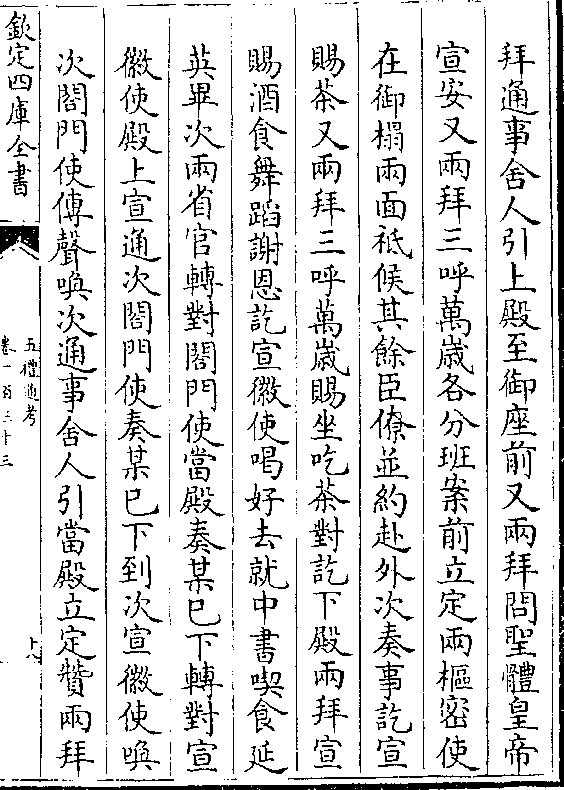 拜通事舍人引上殿至御座前又兩拜問聖體皇帝
宣安又兩拜三呼萬歲各分班案前立定兩樞密使
在御榻兩面祗候其餘臣僚並約赴外次奏事訖宣
賜茶又兩拜三呼萬歲賜坐吃茶對訖下殿兩拜宣
賜酒食舞蹈謝恩訖宣徽使喝好去就中書喫食延
英畢次兩省官轉對閤門使當殿奏某已下轉對宣
徽使殿上宣通次閤門使奏某已下到次宣徽使喚
次閤門使傳聲喚次通事舍人引當殿立定贊兩拜
欽定四庫全書
五禮通考
卷一百三十三
十八